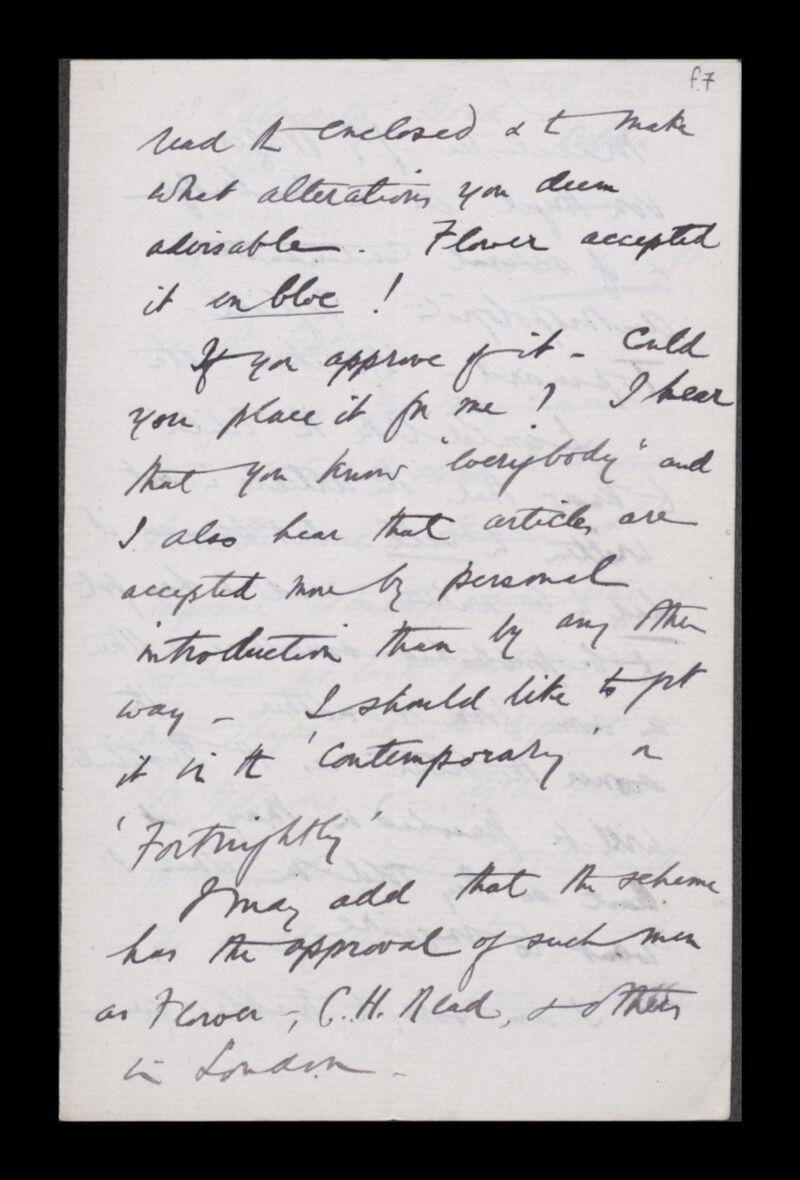 f.7
read the enclosed & to make
what alterations you deem
advisable. Flower accepted
it en bloc !
If you approve of it – could
you place it for me ? I hear
that you know 'everybody' and
I also hear that articles are
accepted more by personal
introduction than by any other
way – I should like to put
it in the 'Contemporary' or
'Fortnightly'
I may add that the scheme
has the approval of such men
as Flower –, C.H. Read, & others
in London –